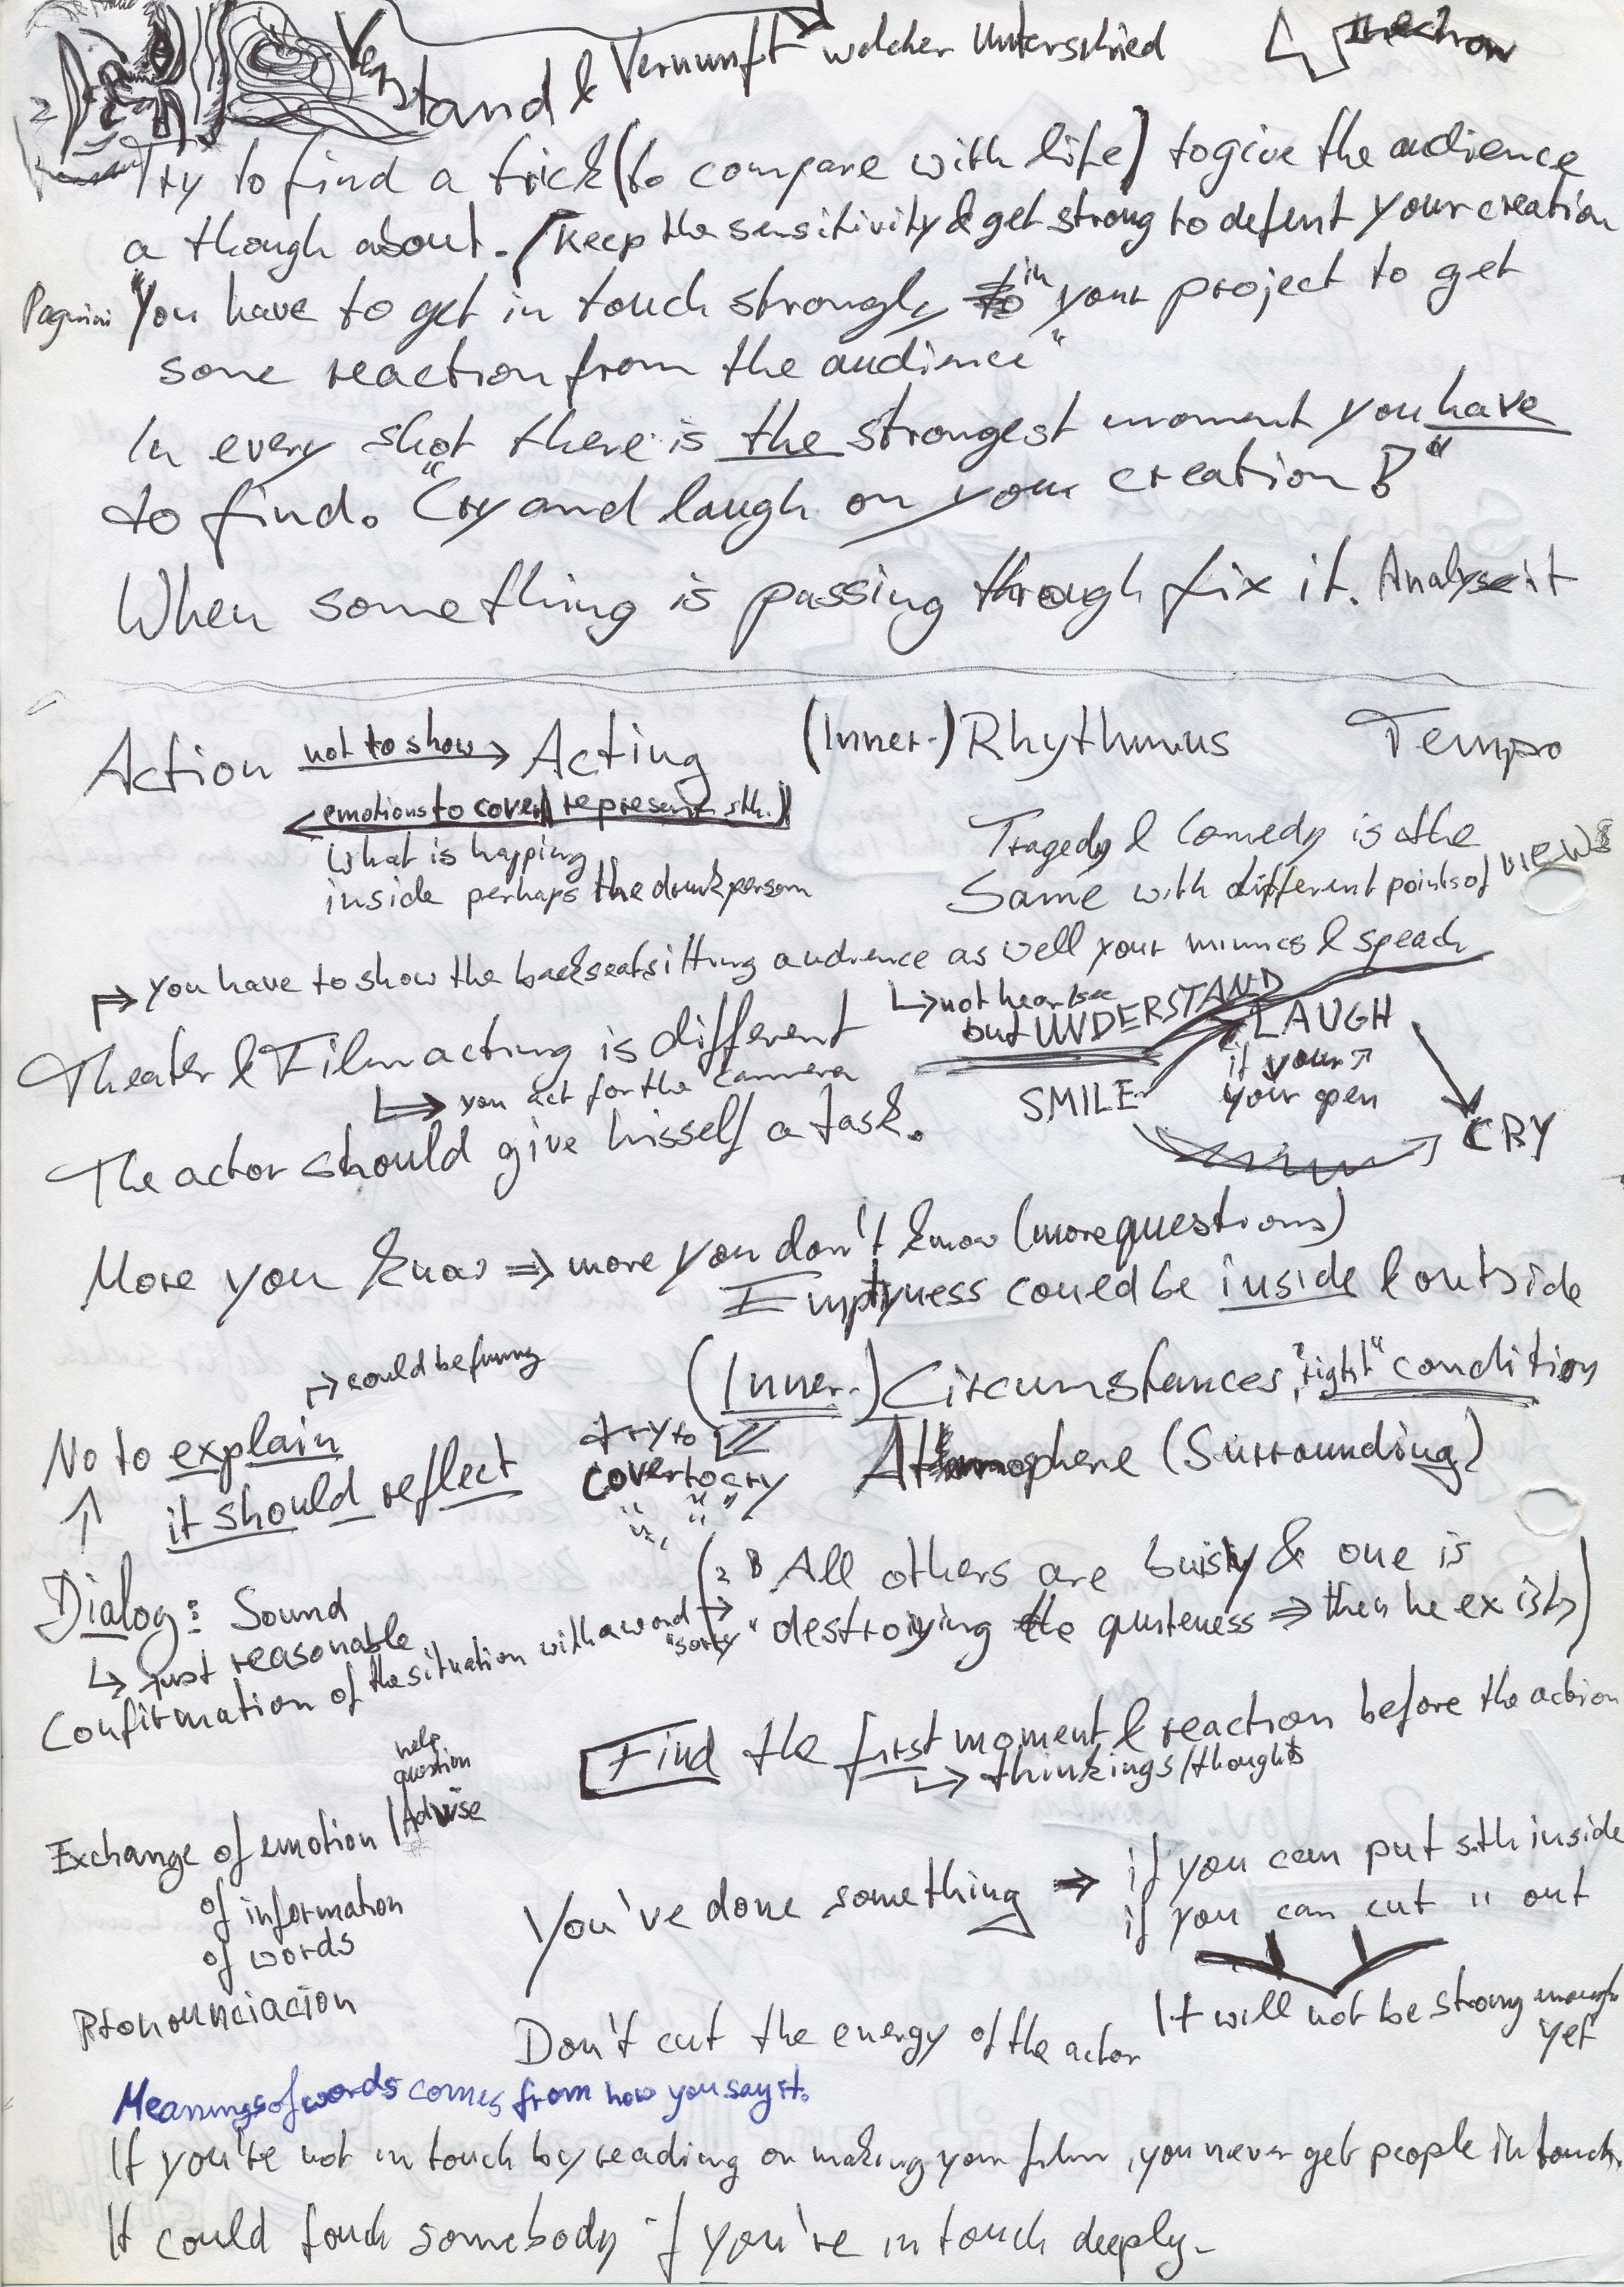 Verstand & Vernunft welcher Unterschied
Try to find a trick (to compare with life) to give the audience
a though about. Keep the sensitivity & get strong to defent your creation
"You have to get in touch strongly in your project to get
some reaction from the audience"
In every shot there is the strongest moment you have
to find. "Cry and laugh on your creation!"
When something is passing through fix it. Analyse it
Action not to show Acting (Inner-) Rhythmus Tempo
emotions to cover (represent sth.)
What is happing
inside perhaps the drunk person
Tragedy & Comedy is the
Same with different points of views
you have to show the backseatsitting audience as well your mimics & speach
not hear/see
but UNDERSTAND
Theater & Filmacting is different
you act for the camera
LAUGH
if your
your open
SMILE
CRY
The actor should give hisself a task.
More you know ⇒ more you don't know (more questions)
Emptyness could be inside & outside
could be funny
(Inner-) Circumstances, "right" condition
No to explain
it should reflect
try to
cover to cry
" " "
Athmosphere (Surrounding)
Dialog: Sound
just reasonable
Confirmation of the situation with a word "sorry"
(z B All others are buisy & one is
destroiying the quiteness ⇒ then he exists)
Find the first moment & reaction before the action
thinkings/thoughts
help
question
Advise
Exchange of emotion
of information
of words
Pronounciacion
You've done something ⇒ if you can put sth inside
if you can cut " out
It will not be strong enough
yet
Don't cut the energy of the actor
Meanings of words comes from how you say it.
If you're not in touch by reading or making your film, you never get people in touch.
It could touch somebody if you're in touch deeply.